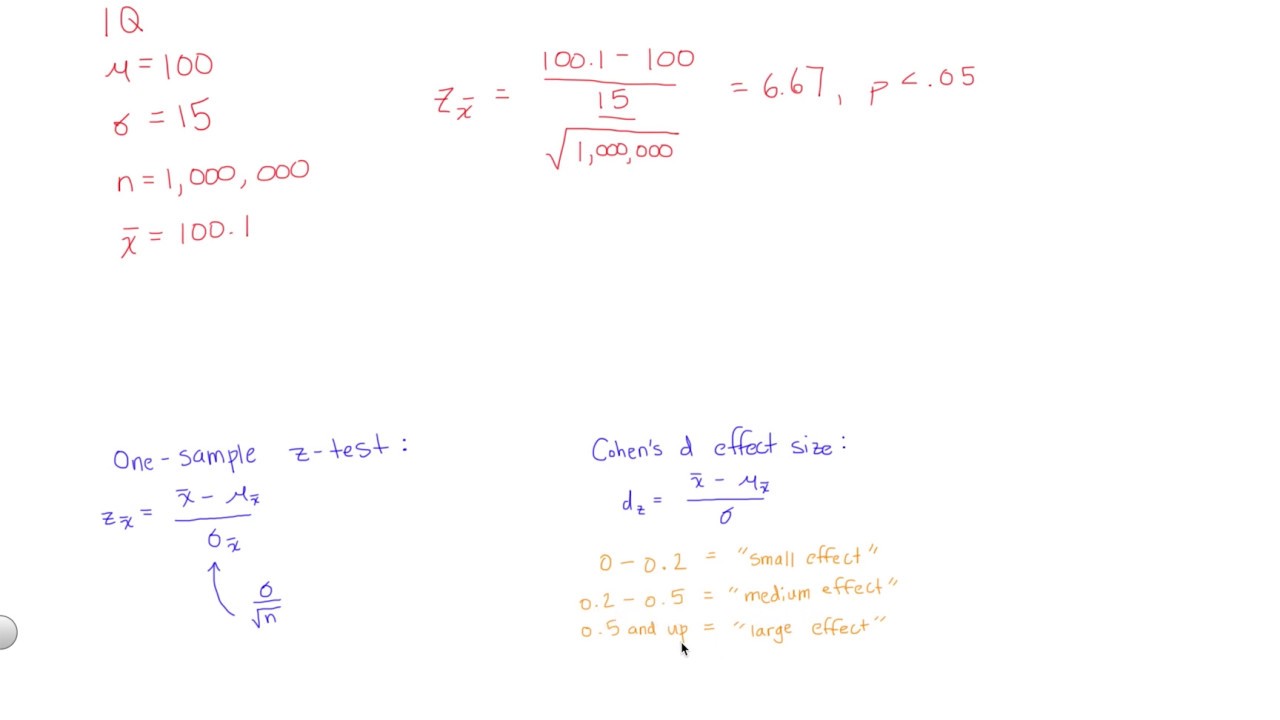 IQ
μ = 100
σ = 15
n = 1,000,000
x̄ = 100.1
z_x̄ = (100.1 - 100) / (15 / √1,000,000) = 6.67, p < .05
One-sample z-test:
z_x̄ = (x̄ - μ_x̄) / σ_x̄
σ / √n
Cohen's d effect size:
d_z = (x̄ - μ_x̄) / σ
0 - 0.2 = "small effect"
0.2 - 0.5 = "medium effect"
0.5 and up = "large effect"